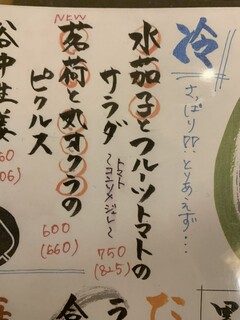 冷
さっぱり!!とりあえず…
水茄子とフルーツトマトの
サラダ
トマト
〜コンソメジュレ〜
750
(825)
NEW
茗荷と丸オクラの
ピクルス
600
(660)
谷中生姜